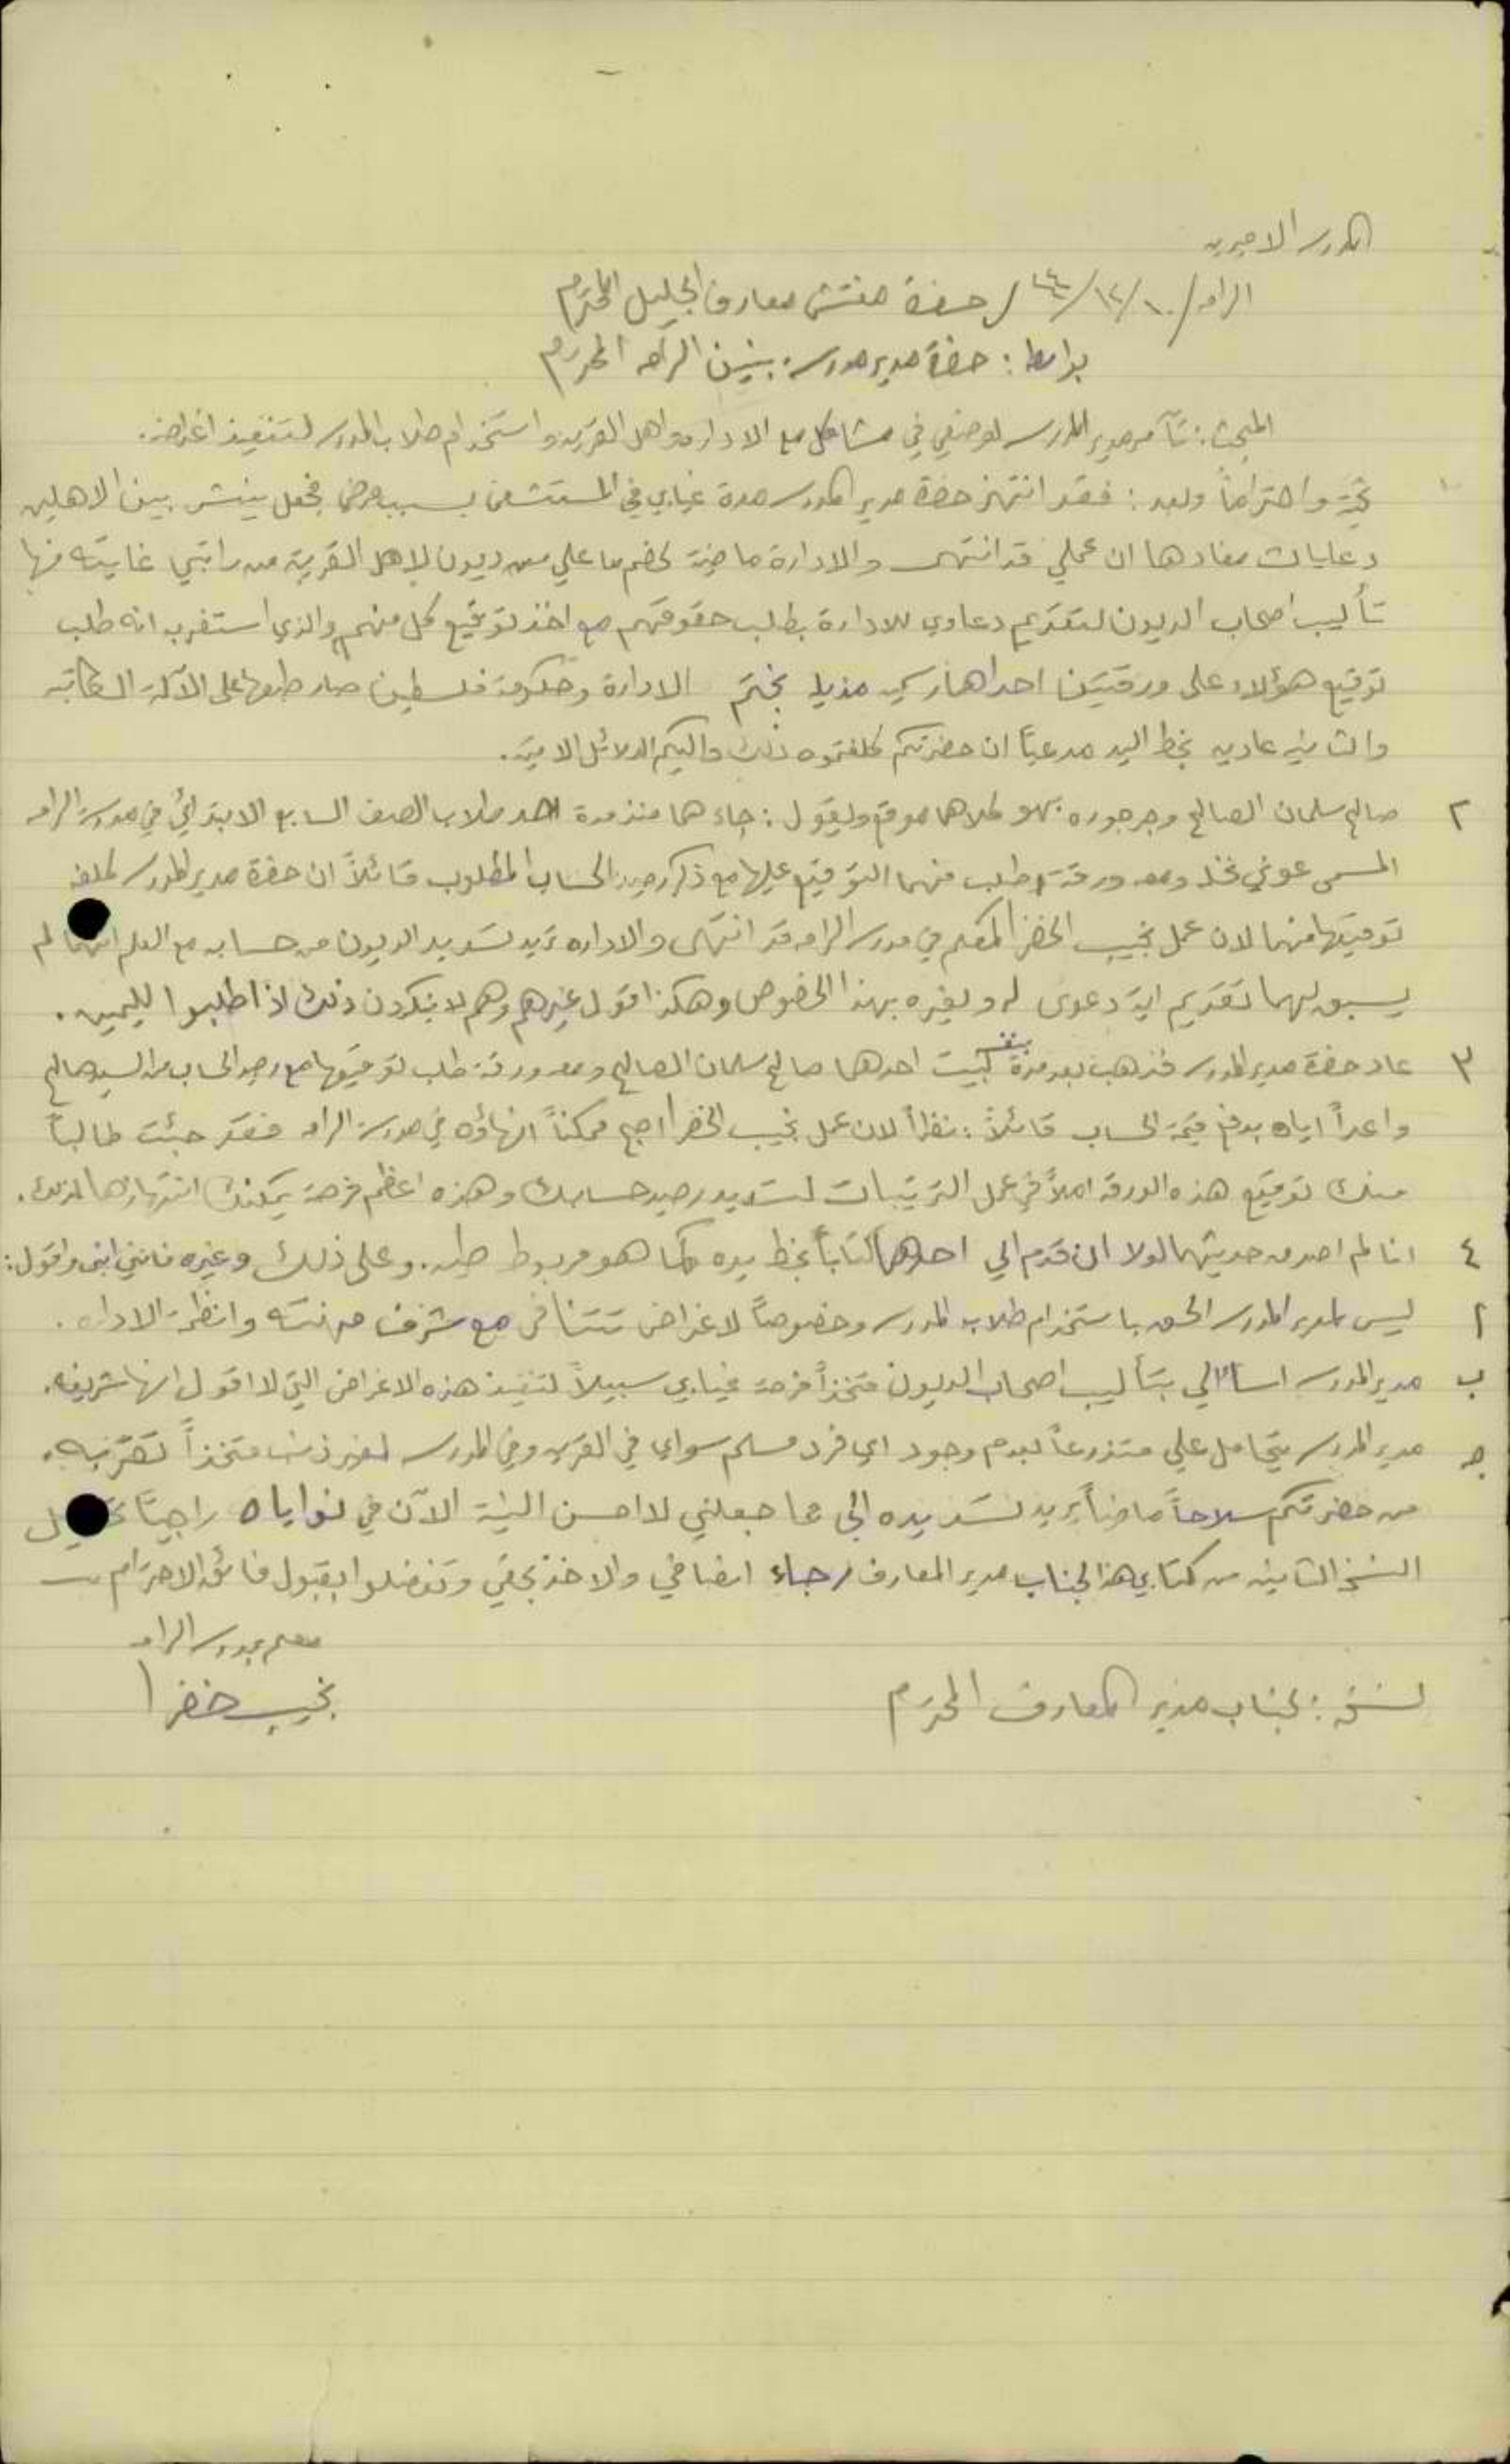 المدرسة الاميرية
الرامه/ ١٠/١٢/٤٤ / حضرة مفتش معارف الجليل المحترم
بواسطة: حضرة مدير مدرسة بنين الرامه المحترم
المبحث: تآمر مدير المدرسة لوضعي في مشاكل مع الاداره واهل القريه واستخدام طلاب المدرسه لتنفيذ اغراضه.
١ تحية واحتراماً وبعد: فقد انتهز حضرة مدير المدرسه مدة غيابي في المستشفى بسبب مرضي فجعل ينشر بين الاهلين
دعايات مفادها ان عملي قد انتهى والادارة ماضية لخصم ما علي من ديون لاهل القرية من راتبي غايته منها
تأليب اصحاب الديون لتقديم دعاوي للادارة بطلب حقوقهم مع اخذ توقيع كل منهم والذي استغرب انه طلب
توقيع هؤلاء على ورقتين احداها رسمي مذيلا بختم الادارة وحكومة فلسطين صار طبعها على الآلة الكاتبه
والثانيه عاديه بخط اليد مدعياً ان حضرتكم كلفتموه ذلك واليكم الدلائل الاتية.
٢ صالح سلمان الصالح وجرجوره كلاهما موقع ويقول: جاءهما منذ مدة احد طلاب الصف السابع الابتدائي في مدرسة الرامه
المسمى عوني ومعه ورقة وطلب منهما التوقيع عليها مع ذكر رصيد الحساب المطلوب قائلاً ان حضرة مدير المدرسه كلفه
توقيعها منهما لان عمل نجيب الخضرا المعلم في مدرسة الرامه قد انتهى والاداره تريد تسديد الديون من حسابه مع العلم انهما لم
يسبق لهما تقديم اية دعوى له ولغيره بهذا الخصوص وهكذا اقول غيرهم وهم لا ينكرون ذلك اذا طلبوا لليمين.
٣ عاد حضرة مدير المدرسه فذهب بعد مدة بنفسه لبيت احدهما صالح سلمان الصالح ومعه ورقة طلب توقيعها مع رصيد الحساب من السيد صالح
واعداً اياه بدفع قيمة الحساب قائلاً: نظراً لان عمل نجيب الخضرا اصبح ممكناً انهاؤه في مدرسة الرامه فقد جئت طالباً
منك توقيع هذه الورقه املاً في عمل الترتيبات لتسديد رصيد حسابك وهذه اعظم فرصة يمكنك انتهازها لذلك.
٤ انا لم اصدق حديثهما لولا ان قدم الي احدهما كتاباً بخط يده كما هو مربوط طيه. وعلى ذلك وغيره فانني واقول:
أ ليس لمدير المدرسه الحق باستخدام طلاب المدرسه وخصوصاً لاغراض تتنافى مع شرف مهنته وانظمة الاداره.
ب مدير المدرسه اساء الي بتأليب اصحاب الديون متخذاً فرصة غيابي سبيلاً لتنفيذ هذه الاغراض التي لا اقول انها شريفه.
ج مدير المدرسه يتحامل علي متذرعاً بعدم وجود اي فرد مسلم سواي في القريه وفي المدرسه لغير ذنب متخذاً تقربه
من حضرتكم سلاحاً ماضياً يريد تسديده الي مما جعلني لا احسن النية الآن في نواياه راجياً
النسخة الثانيه من كتابي هذا لجناب مدير المعارف رجاء انصافي والاخذ بحقي وتفضلوا بقبول فائق الاحترام
معلم بمدرسة الرامه
نجيب خضرا
نسخة: لجناب مدير المعارف المحترم